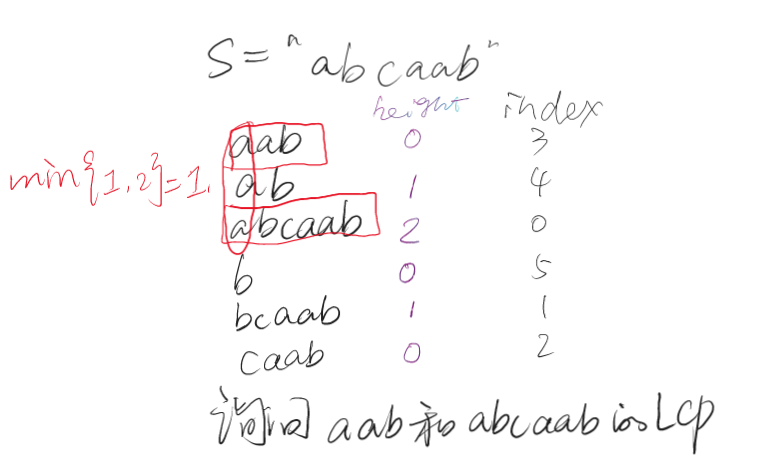 S="abcaab"
height index
aab 0 3
min{1,2}=1. ab 1 4
abcaab 2 0
b 0 5
bcaab 1 1
caab 0 2
询问 aab和abcaab的Lcp